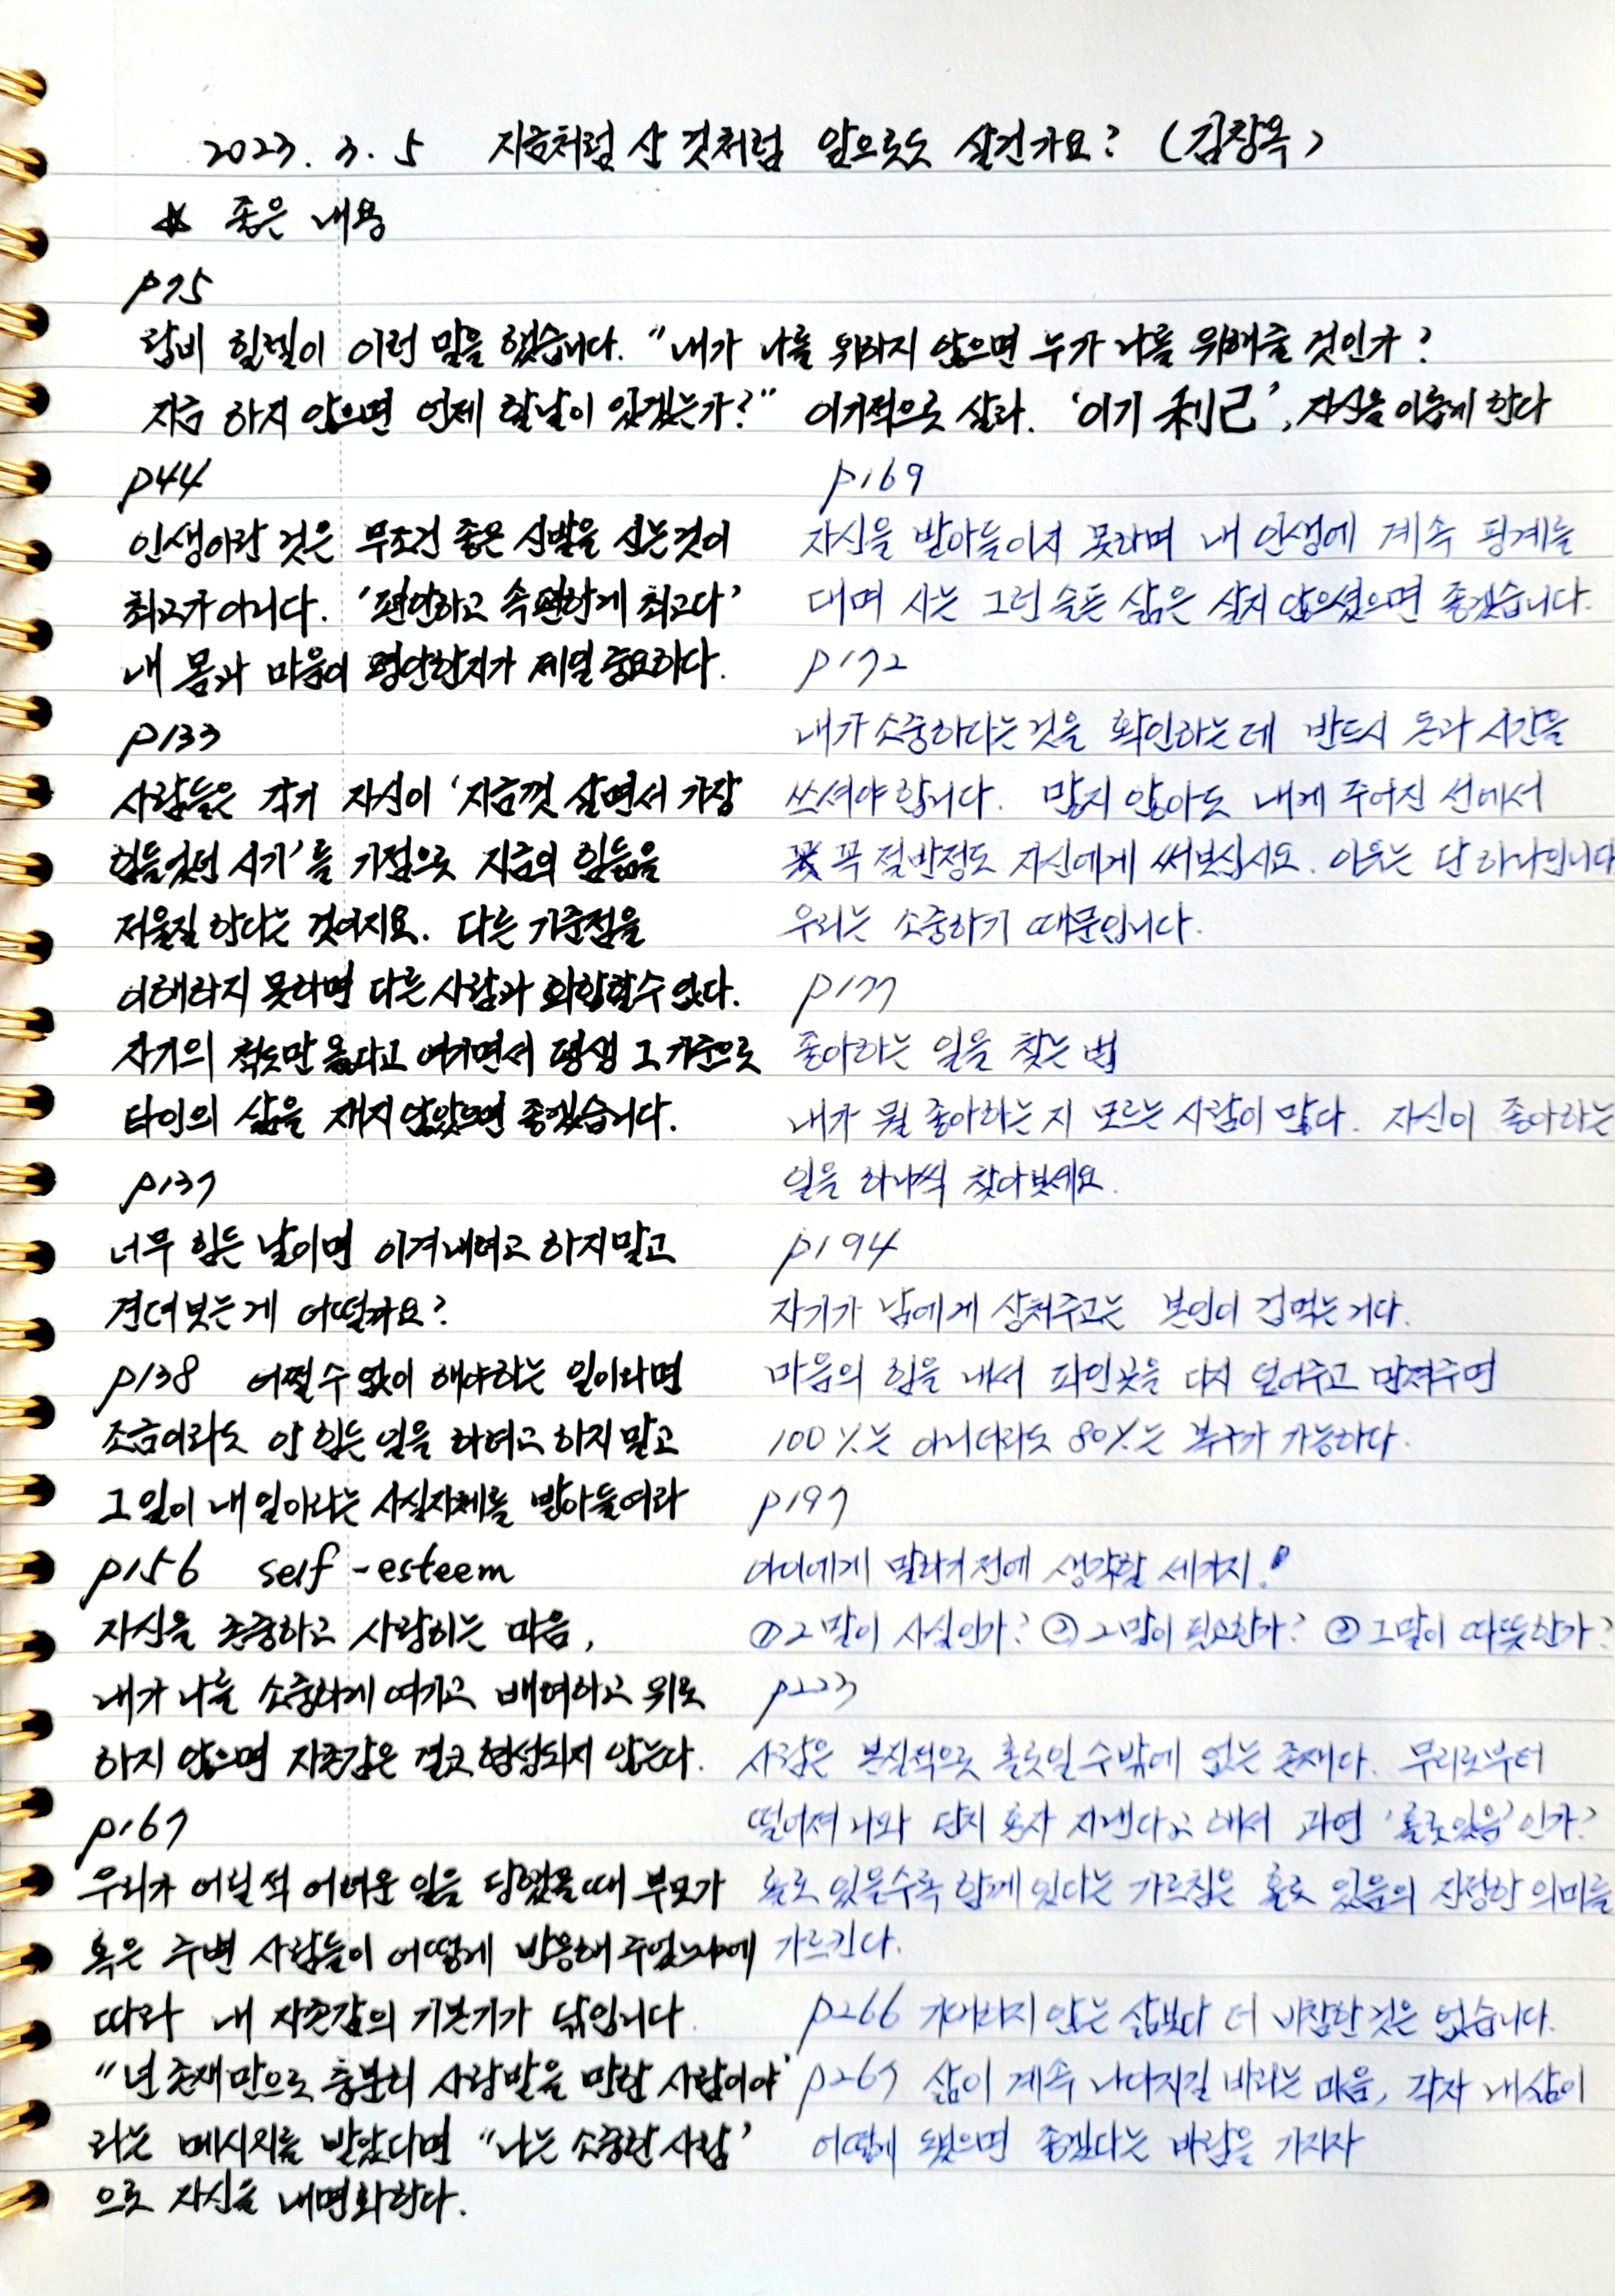 2023. 3. 5 지금처럼 산 것처럼 앞으로도 살건가요? (김창옥)
☆ 좋은 내용
p75
랍비 힐렐이 이런 말을 했습니다. "내가 나를 위하지 않으면 누가 나를 위해줄 것인가?
지금 하지 않으면 언제 할날이 있겠는가?" 이기적으로 살라. '이기 利己', 자신을 이롭게 한다
p44
인생이란 것은 무조건 좋은 신발을 신는것이
최고가 아니다. '편안하고 속편한게 최고다'
내 몸과 마음이 평안한지가 제일 중요하다.
p133
사람들은 각기 자신이 '지금껏 살면서 가장
힘들었던 시기'를 기점으로 지금의 힘듦을
저울질 한다는 것이지요. 다른 기준점을
이해하지 못하면 다른 사람과 화합할수 없다.
자기의 척도만 옳다고 여기면서 평생 그 기준으로
타인의 삶을 재지 않았으면 좋겠습니다.
p137
너무 힘든 날이면 이겨내려고 하지말고
견뎌보는 게 어떨까요?
p138 어쩔수 없이 해야하는 일이라면
조금이라도 안 힘든 일을 하려고 하지 말고
그일이 내일이라는 사실자체를 받아들여라
p156 self-esteem
자신을 존중하고 사랑하는 마음,
내가 나를 소중하게 여기고 배려하고 위로
하지 않으면 자존감은 결코 형성되지 않는다.
p167
우리가 어릴 적 어려운 일을 당했을때 부모가
혹은 주변 사람들이 어떻게 반응해 주었느냐에
따라 내 자존감의 기본기가 닦입니다
"넌 존재만으로 충분히 사랑받을 만한 사람이야'
라는 메시지를 받았다면 "나는 소중한 사람'
으로 자신을 내면화한다.
p169
자신을 받아들이지 못하며 내 인생에 계속 핑계를
대며 사는 그런 슬픈 삶은 살지 않으셨으면 좋겠습니다.
p172
내가 소중하다는 것을 확인하는 데 반드시 돈과 시간을
쓰셔야 합니다. 많지 않아도 내게 주어진 선에서
꼭 절반정도 자신에게 써보십시요. 이유는 단 하나입니다
우리는 소중하기 때문입니다.
p177
좋아하는 일을 찾는 법
내가 뭘 좋아하는 지 모르는 사람이 많다. 자신이 좋아하는
일을 하나씩 찾아보세요.
p194
자기가 남에게 상처주고는 본인이 겁먹는거다.
마음의 힘을 내서 파인곳을 다시 덮어주고 만져주면
100%는 아니더라도 80%는 복구가 가능하다.
p197
아이에게 말하기 전에 생각할 세가지!
① 그 말이 사실인가? ② 그말이 필요한가? ③ 그말이 따뜻한가?
p223
사람은 본질적으로 홀로일 수밖에 없는 존재다. 무리로부터
떨어져 나와 단지 혼자 지낸다고 해서 과연 '홀로있음'인가?
홀로 있을수록 함께 있다는 가르침은 홀로 있음의 진정한 의미를
가르킨다.
p266 기대하지 않는 삶보다 더 비참한 것은 없습니다.
p267 삶이 계속 나아지길 바라는 마음, 각자 내삶이
어떻게 됐으면 좋겠다는 바람을 가지자